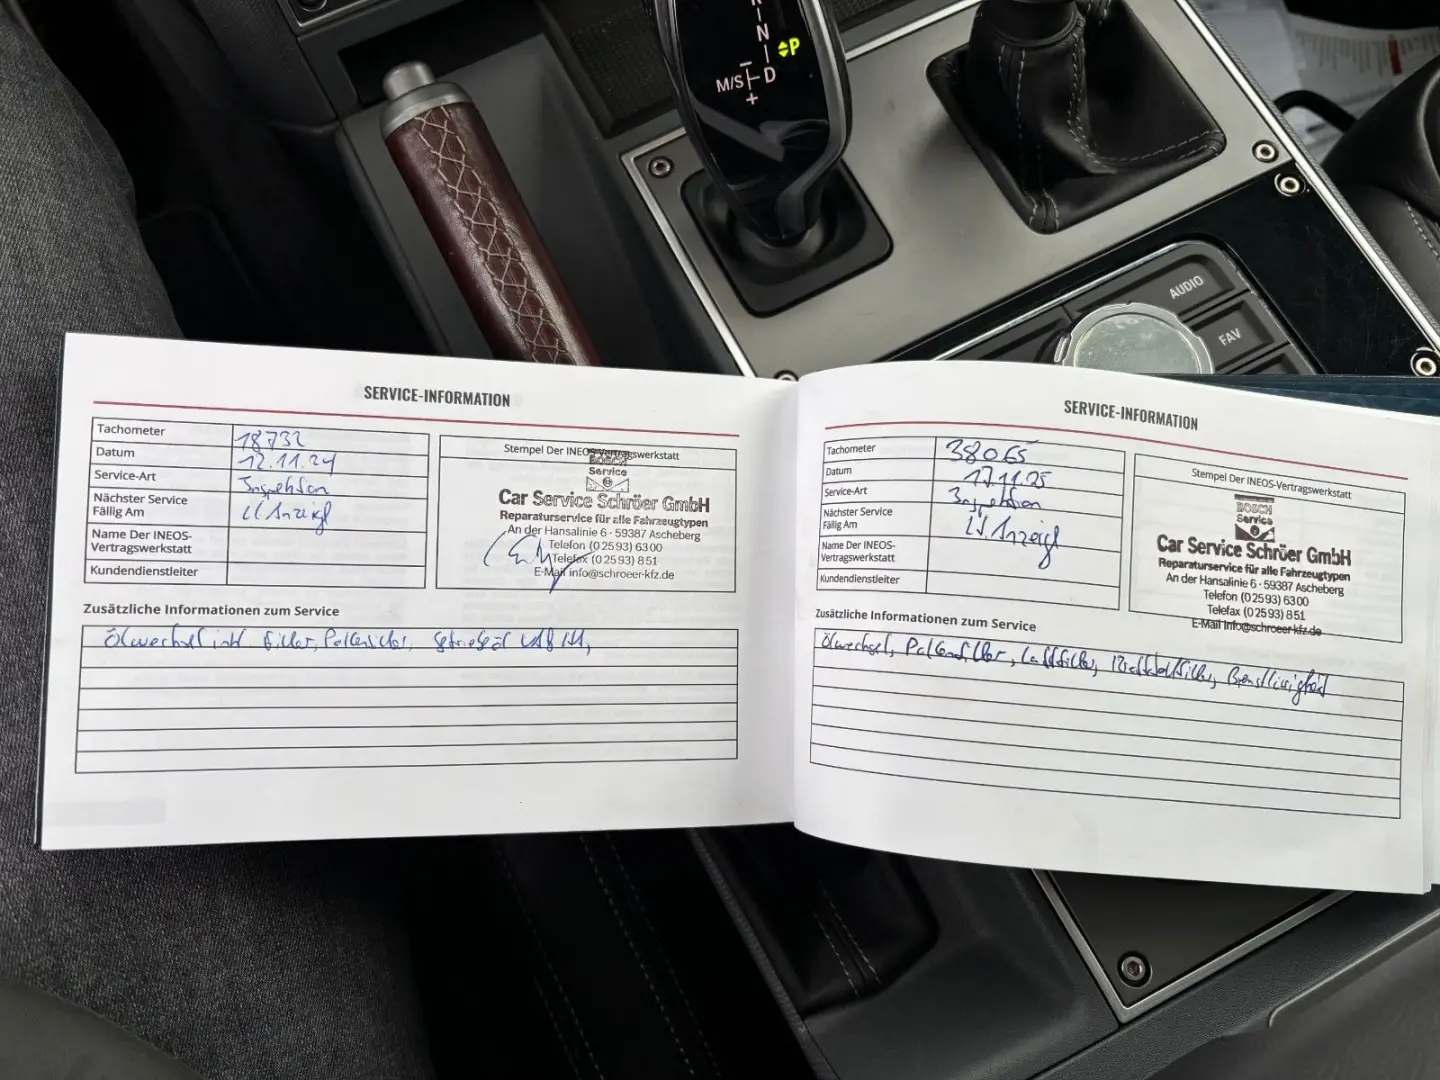 N
P
M/S
D
+
AUDIO
FAV
SERVICE-INFORMATION
Tachometer 18732
Datum 12.11.24
Service-Art Inspektion
Nächster Service
Fällig Am Lt. Anzeige
Name Der INEOS-
Vertragswerkstatt
Kundendienstleiter
Stempel Der INEOS-Vertragswerkstatt
BOSCH
Service
Car Service Schröer GmbH
Reparaturservice für alle Fahrzeugtypen
An der Hansalinie 6 · 59387 Ascheberg
Telefon (0 25 93) 63 00
Telefax (0 25 93) 8 51
E-Mail info@schroeer-kfz.de
Zusätzliche Informationen zum Service
Ölwechsel inkl. Filter, Pollenfilter,
SERVICE-INFORMATION
Tachometer 38065
Datum 17.11.25
Service-Art Inspektion
Nächster Service
Fällig Am Lt. Anzeige
Name Der INEOS-
Vertragswerkstatt
Kundendienstleiter
Stempel Der INEOS-Vertragswerkstatt
BOSCH
Service
Car Service Schröer GmbH
Reparaturservice für alle Fahrzeugtypen
An der Hansalinie 6 · 59387 Ascheberg
Telefon (0 25 93) 63 00
Telefax (0 25 93) 8 51
E-Mail info@schroeer-kfz.de
Zusätzliche Informationen zum Service
Ölwechsel, Pollenfilter, Luftfilter, Kraftstofffilter, Bremsflüssigkeit